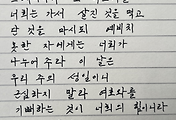 너희는 가서 살진 것을 먹고
단 것을 마시되 예비치
못한 자에게는 너희가
나누어 주라 이 날은
우리 주의 성일이니
근심하지 말라 여호와를
기뻐하는 것이 너희의 힘이니라